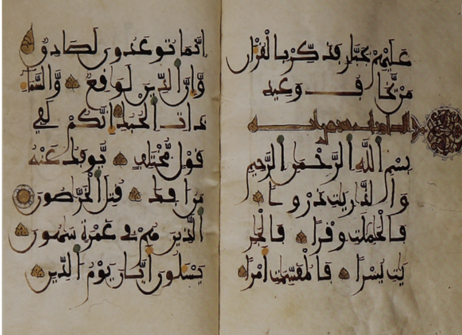 عَلَيْهِمْ بِجَبَّارٍ فَذَكِّرْ بِالْقُرْآنِ
مَنْ يَخَافُ وَعِيدِ
بِسْمِ اللَّهِ الرَّحْمَنِ الرَّحِيمِ
وَالذَّرِيَتِ ذَرْوًا
فَالْحَمِلَتِ وِقْرًا فَالْجَرِ
يَتِ يُسْرًا فَالْمُقَسِّمَتِ أَمْرًا
إِنَّمَا تُوعَدُونَ لَصَادِقٌ
وَإِنَّ الدِّينَ لَوَاقِعٌ وَالسَّمَاءِ
ذَاتِ الْحُبُكِ إِنَّكُمْ لَفِي
قَوْلٍ مُخْتَلِفٍ يُؤْفَكُ عَنْهُ
مَنْ أُفِكَ قُتِلَ الْخَرَّصُونَ
الَّذِينَ هُمْ فِي غَمْرَةٍ سَهُونَ
يَسْئَلُونَ أَيَّانَ يَوْمُ الدِّينِ